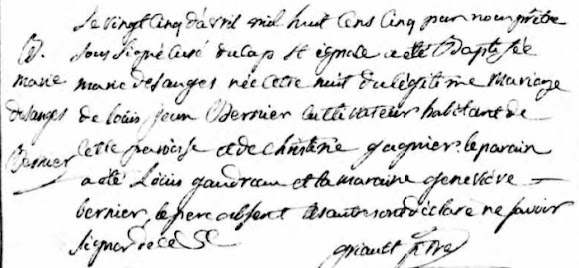 Le vingt cinq d'avril mil huit cens cinq par nous prêtre
B. soussigné curé du cap St ignace a été Baptisée
marie marie des anges née cette nuit du légitime Mariage
desanges de louis jean Bernier cultivateur habitant de
Bernier cette paroisse et de christine gagnier. le parain
a été Louis gaudreau et la maraine geneviève
bernier, le pere absent les autres ont déclaré ne savoir
signer de ce
griault Ptre